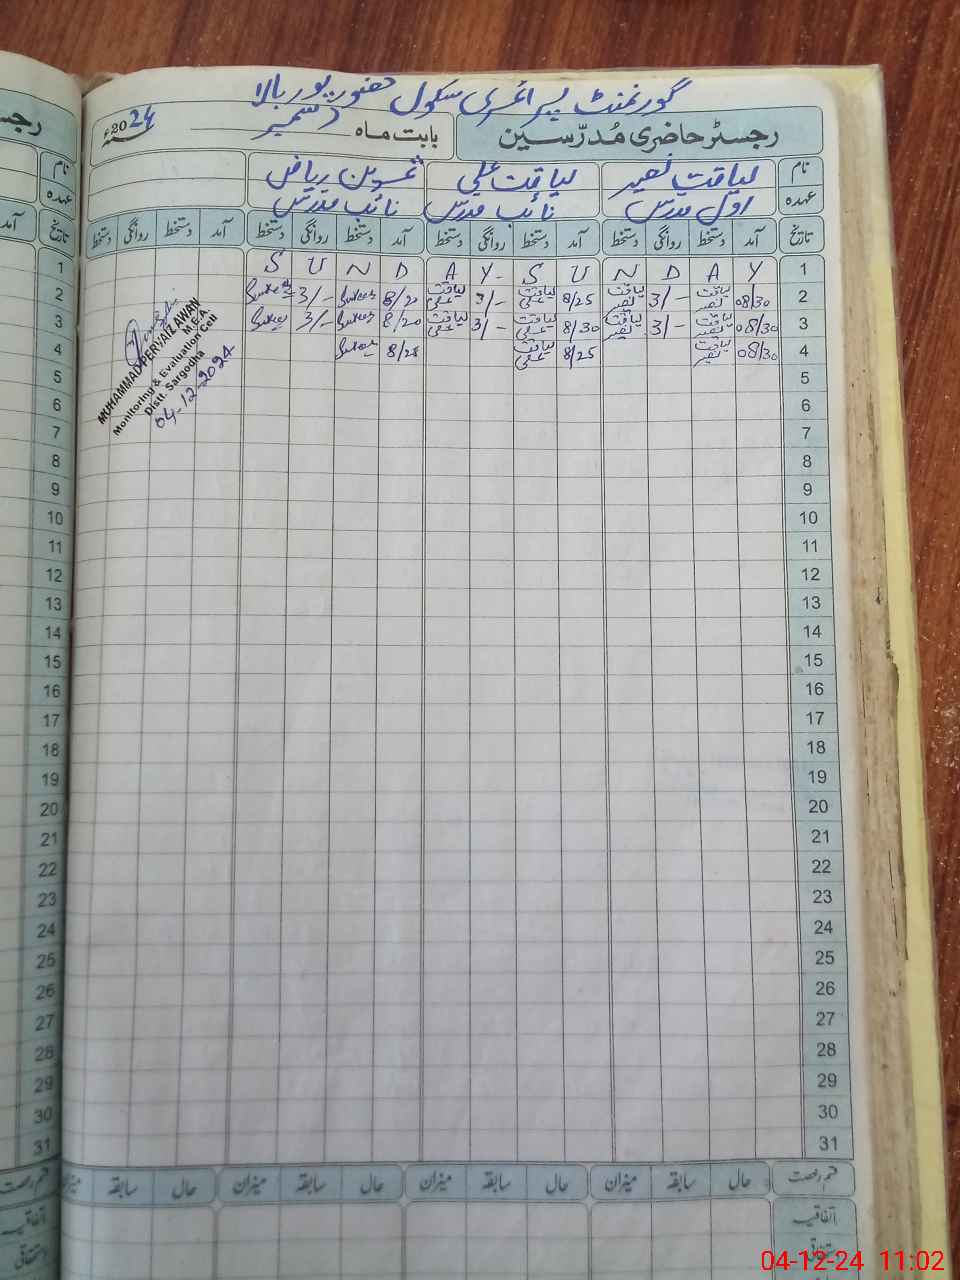 گورنمنٹ پرائمری سکول حضور پور بالا
رجسٹر حاضری مُدرّسین
بابت ماہ دسمبر 2024ء
نام لیاقت نصیر لیاقت علی ریاض
عہدہ اول مدرس نائب مدرس نائب مدرس
تاریخ آمد دستخط روانگی دستخط آمد دستخط روانگی دستخط آمد دستخط روانگی دستخط آمد دستخط روانگی دستخط
1 S U N D A Y S U N D A Y 1
2 3/- 8/20 لیاقت علی 3/- لیاقت علی 8/25 لیاقت نصیر 3/- لیاقت نصیر 08/30 2
3 3/- 8/20 لیاقت علی 3/- لیاقت علی 8/30 لیاقت نصیر 3/- لیاقت نصیر 08/30 3
4 8/25 لیاقت علی 8/25 لیاقت نصیر 08/30 4
MUHAMMAD PERVAIZ AWAN
M.E.A.
Monitoring & Evaluation Cell
Distt. Sargodha
04-12-2024
5 5
6 6
7 7
8 8
9 9
10 10
11 11
12 12
13 13
14 14
15 15
16 16
17 17
18 18
19 19
20 20
21 21
22 22
23 23
24 24
25 25
26 26
27 27
28 28
29 29
30 30
31 31
قسم رخصت حال سابقہ میزان حال سابقہ میزان حال سابقہ میزان حال سابقہ میزان
اتفاقیہ
استحقاقی
04-12-24 11:02